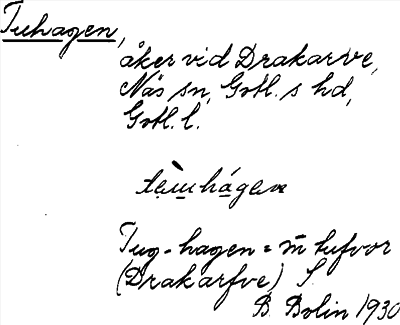 Tuhagen,
åker vid Drakarve,
Näs sn, Gotl. s hd,
Gotl. l.
Tug-hagen = m̄ tufvor
(Drakarfve) S.
B. Bolin 1930